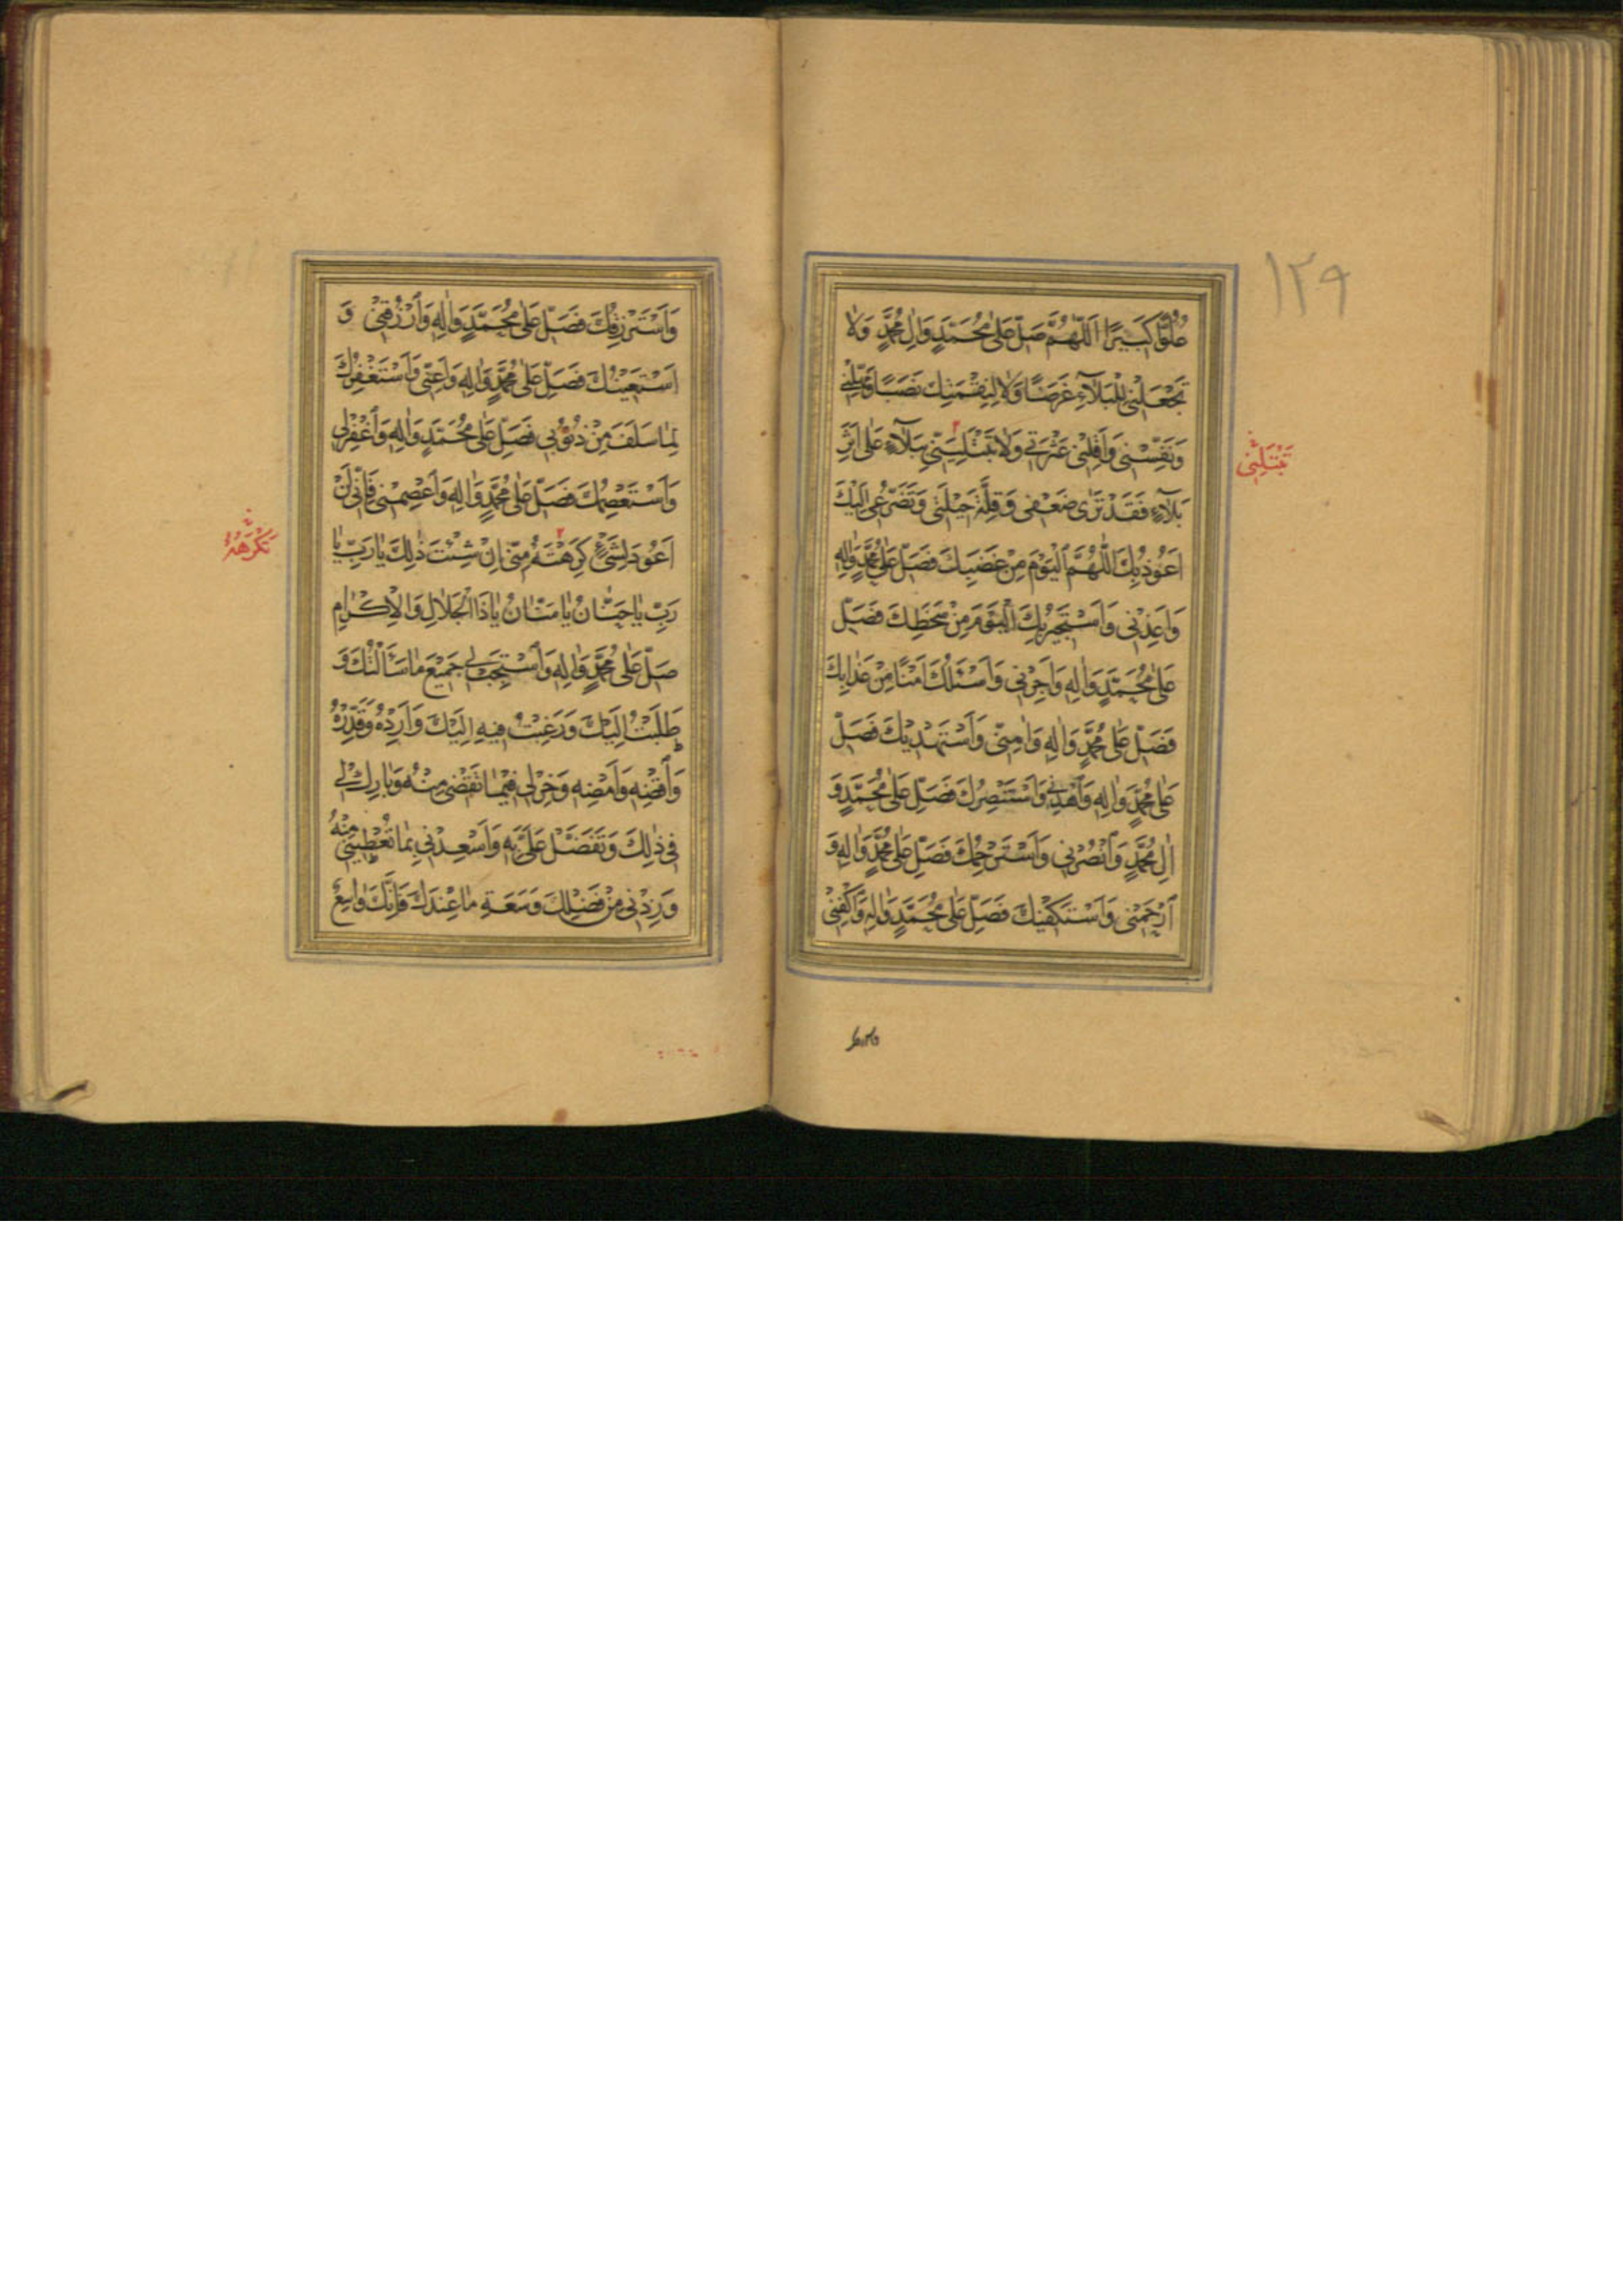 ١٢٩
عُلُوًّا كَبِيرًا اَللّٰهُمَّ صَلِّ عَلٰى مُحَمَّدٍ وَاٰلِ مُحَمَّدٍ وَلَا
تَجْعَلْنِي لِلْبَلَاۤءِ غَرَضًا وَلَا لِنِقْمَتِكَ نَصَبًا وَمَهِّلْنِي
وَنَفِّسْنِي وَاَقِلْنِي عَثْرَتِي وَلَا تَبْتَلِيَنِّي بِبَلَاۤءٍ عَلٰى اَثَرِ
تَبْتَلِنِي
بَلَاۤءٍ فَقَدْ تَرٰى ضَعْفِي وَقِلَّةَ حِيْلَتِي وَتَضَرُّعِي اِلَيْكَ
اَعُوذُ بِكَ اللّٰهُمَّ الْيَوْمَ مِنْ غَضَبِكَ فَصَلِّ عَلٰى مُحَمَّدٍ وَاٰلِهِ
وَاَعِذْنِي وَاَسْتَجِيرُ بِكَ الْيَوْمَ مِنْ سَخَطِكَ فَصَلِّ
عَلٰى مُحَمَّدٍ وَاٰلِهِ وَاَجِرْنِي وَاَسْئَلُكَ اَمْنًا مِنْ عَذَابِكَ
فَصَلِّ عَلٰى مُحَمَّدٍ وَاٰلِهِ وَاٰمِنِّي وَاَسْتَهْدِيْكَ فَصَلِّ
عَلٰى مُحَمَّدٍ وَاٰلِهِ وَاهْدِنِي وَاَسْتَنْصِرُكَ فَصَلِّ عَلٰى مُحَمَّدٍ وَ
اٰلِ مُحَمَّدٍ وَانْصُرْنِي وَاَسْتَرْحِمُكَ فَصَلِّ عَلٰى مُحَمَّدٍ وَاٰلِهِ وَ
ارْحَمْنِي وَاَسْتَكْفِيْكَ فَصَلِّ عَلٰى مُحَمَّدٍ وَاٰلِهِ وَاكْفِنِي
وَاَسْتَرْزِقُكَ فَصَلِّ عَلٰى مُحَمَّدٍ وَاٰلِهِ وَارْزُقْنِي وَ
اَسْتَعِيْنُكَ فَصَلِّ عَلٰى مُحَمَّدٍ وَاٰلِهِ وَاَعِنِّي وَاَسْتَغْفِرُكَ
لِمَا سَلَفَ مِنْ ذُنُوْبِي فَصَلِّ عَلٰى مُحَمَّدٍ وَاٰلِهِ وَاغْفِرْلِي
وَاَسْتَعْصِمُكَ فَصَلِّ عَلٰى مُحَمَّدٍ وَاٰلِهِ وَاعْصِمْنِي فَاِنِّي لَنْ
اَعُودَ لِشَيْءٍ كَرِهْتَهُ مِنِّي اِنْ شِئْتَ ذٰلِكَ يَا رَبِّ يَا
تَكْرَهُهُ
رَبِّ يَا حَنَّانُ يَا مَنَّانُ يَا ذَا الْجَلَالِ وَالْاِكْرَامِ
صَلِّ عَلٰى مُحَمَّدٍ وَاٰلِهِ وَاسْتَجِبْ لِي جَمِيْعَ مَا سَأَلْتُكَ وَ
طَلَبْتُ اِلَيْكَ وَرَغِبْتُ فِيهِ اِلَيْكَ وَاَرِدْهُ وَقَدِّرْهُ
وَاقْضِهِ وَاَمْضِهِ وَخِرْ لِي فِيْمَا تَقْضِي مِنْهُ وَبَارِكْ لِي
فِي ذٰلِكَ وَتَفَضَّلْ عَلَيَّ بِهِ وَاَسْعِدْنِي بِمَا تُعْطِيْنِي مِنْهُ
وَزِدْنِي مِنْ فَضْلِكَ وَسَعَةِ مَا عِنْدَكَ فَاِنَّكَ وَاسِعٌ